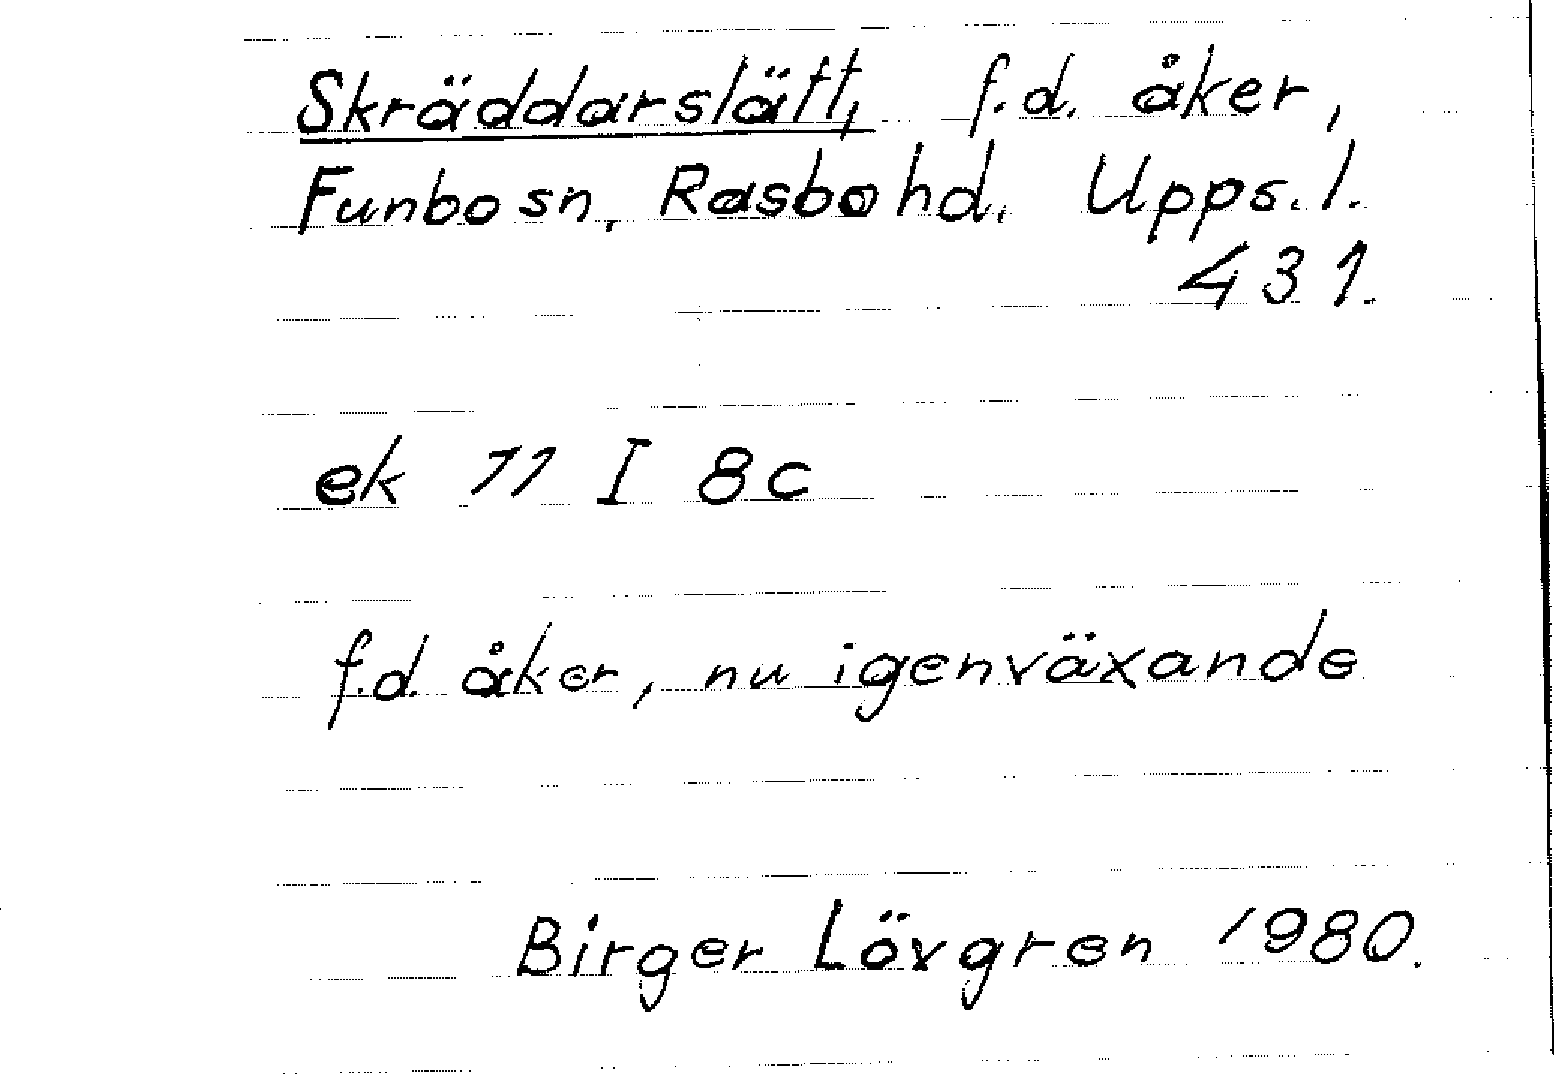 Skräddarslätt, f.d. åker,
Funbo sn, Rasbo hd. Upps. l.
431.
ek 11 I 8c
f.d. åker, nu igenväxande
Birger Lövgren 1980.